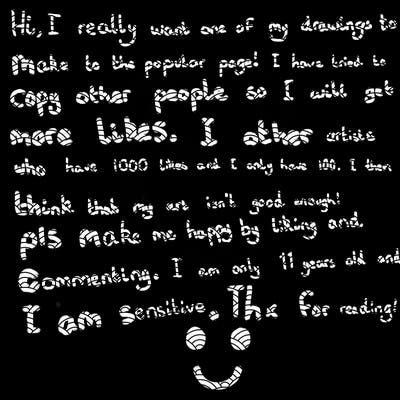 Hi, I really want one of my drawings to
Make to the popular page! I have tried to
copy other people so I will get
more likes. I other artists
who have 1000 likes and I only have 100. I then
think that my art isn't good enough!
pls make me happy by liking and
Commenting. I am only 11 years old and
I am sensitive. Thx for reading!